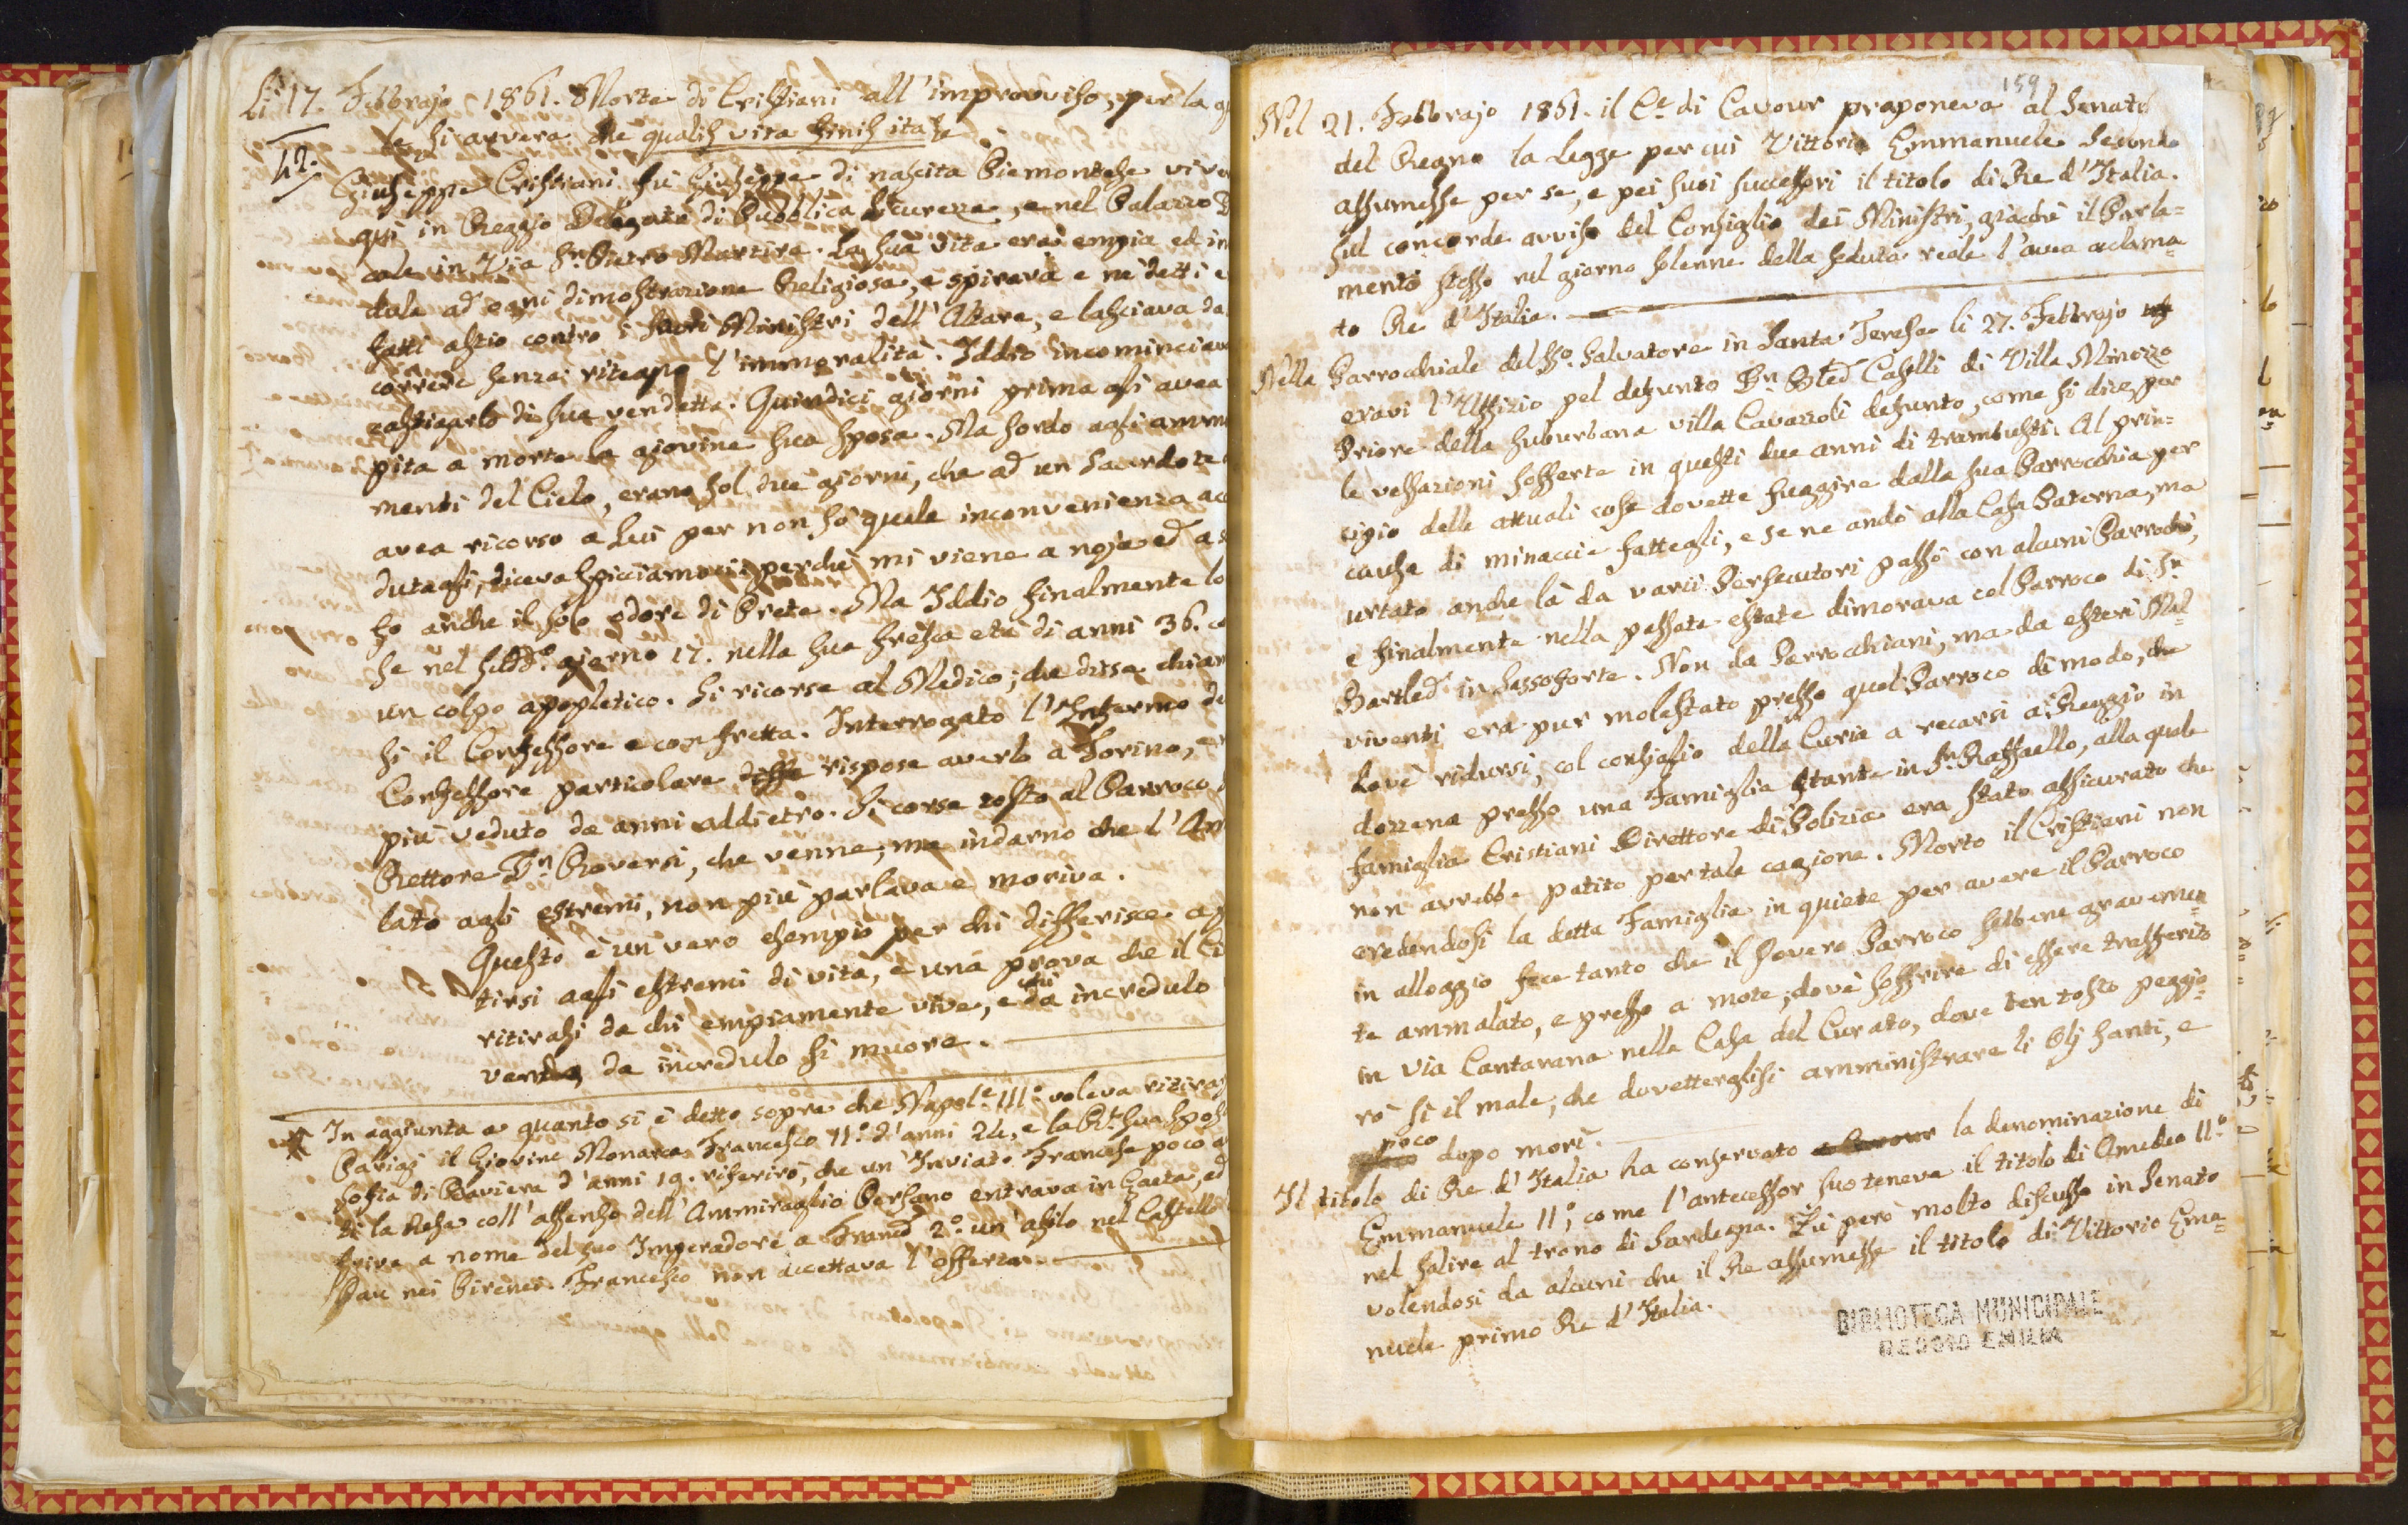 Li 17. Febbrajo 1861. Morte di Cristiani all'improvviso, per la
le si avvera che qualis vita finis ita
42.
Giuseppe Cristiani fu Giuseppe di nascita Piemontese vive
quì in Reggio Delegato di Pubblica Sicurezza, e nel Palazzo
cale in Via Sn. Pietro Martire. La sua vita era empia ed in
dule ad ogni dimostrazione Religiosa, e spirava e ne' detti e
fatti astio contro i Sacri Ministri dell'Altare, e lasciava da
correre senza ritegno l'immoralità. Iddio incominciava
castigarlo di sua vendetta. Quindici giorni prima gli avea
pita a morte la giovine sua sposa. Ma sordo agli ammo
menti del Cielo, erano sol due giorni, che ad un Sacerdote
avea ricorso a Lui per non sò quale inconvenienza ac
dutagli, diceva spicciamoci perchè mi viene a noja ed a s
so anche il solo odore di Prete. Ma Iddio finalmente lo
se nel sudd.o giorno 17. nella sua fresca età di anni 36. co
un colpo apopletico. Si ricorse al Medico; che disse chiam
si il Confessore e con fretta. Interrogato l'Infermo de
Confessore particolare disse rispose averlo a Torino, e
più veduto da anni addietro. Si corse tosto al Parroco
Rettore Dn. Roversi, che venne, ma indarno che l'Am
lato agli estremi, non più parlava e moriva.
Questo è un vero esempio per chi differisce a
tirsi agli estremi di vita, e una prova che il Ci
ritirasi da chi empiamente vive, e chi da incredulo
vente, da incredulo si muore.
In aggiunta a quanto si è detto sopra che Napol.e III.o voleva ritirar
Parigi il Giovine Monarca Francesco II.o d'anni 24, e la R.a sua Spos
Sofia di Baviera d'anni 19. riferirò, che un Inviato Francese poco
di la Resa coll'assenso dell'Ammiraglio Persano entrava in Gaeta, ed
friva a nome del suo Imperadore a Franc.o 2.o un asilo nel Castello
Pau nei Pirenei. Francesco non accettava l'offerta.
159
Nel 21. Febbrajo 1861. il C.e di Cavour proponeva al Senato
del Regno la Legge per cui Vittorio Emmanuele Secondo
assumesse per se, e pei suoi successori il titolo di Re d'Italia.
sul concorde avviso del Consiglio dei Ministri, giacchè il Parla=
mento stesso nel giorno solenne della seduta reale l'avea aclama=
to Re d'Italia.
Nella Parrocchiale del SSo. Salvatore in Santa Teresa li 27. Febbrajo
eravi l'Uffizio pel defunto Dn. Caselli di Villa Minozzo
Priore della suburbana villa Cavazzoli defunto, come si dice, per
le vessazioni sofferte in questi due anni di trambusti. Al prin=
cipio delle attuali cose dovette fuggire dalla sua Parrocchia per
causa di minaccie fattegli, e se ne andò alla Casa Paterna, ma
urtato anche là da varii Persecutori passò con alcuni Parrochi,
e finalmente nella passata estate dimorava col Parroco di Sn.
Bartled. in Sassoforte. Non da Parrocchiani, ma da esteri Mal=
viventi era pur molestato presso quel Parroco di modo, che
dovè ridursi, col consiglio della Curia a recarsi a Reggio in
dozzena presso una Famiglia stante in Sn. Raffaello, alla quale
famiglia Cristiani Direttore di Polizia era stato assicurato che
non avrebbe patito per tale cagione. Morto il Cristiani non
credendosi la detta Famiglia in quiete per avere il Parroco
in alloggio fece tanto che il povero Parroco sebbene gravemen=
te ammalato, e presso a morte, dovè soffrire di essere trasferito
in via Cantarana nella Casa del Curato, dove ben tosto peggio=
rò si il male, che dovetterglisi amministrare li Olj santi, e
poco dopo morì.
Il titolo di Re d'Italia ha conservato la denominazione di
Emmanuele II.o, come l'antecessor suo teneva il titolo di Amedeo II.o
nel salire al trono di Sardegna. Fù però molto discusso in Senato
volendosi da alcuni che il Re assumesse il titolo di Vittorio Ema=
nuele primo Re d'Italia.
BIBLIOTECA MUNICIPALE
REGGIO EMILIA